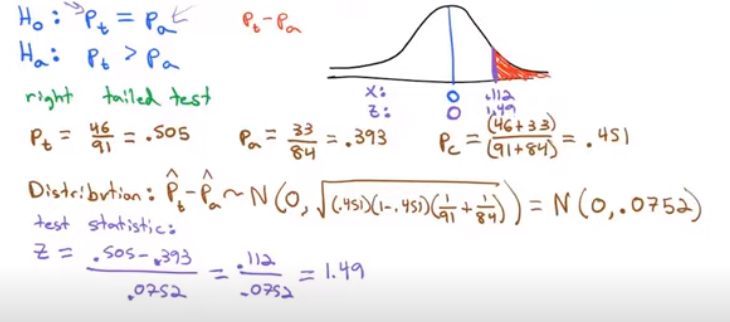 H₀: Pₜ = Pₐ Pₜ - Pₐ
Hₐ: Pₜ > Pₐ
right tailed test
X: 0 .112
Z: 0 1.49
Pₜ = 46/91 = .505 Pₐ = 33/84 = .393 P_c = (46+33)/(91+84) = .451
Distribution: P̂ₜ - P̂ₐ ~ N(0, √((.451)(1-.451)(1/91 + 1/84))) = N(0, .0752)
test statistic:
Z = .505-.393/.0752 = .112/.0752 = 1.49